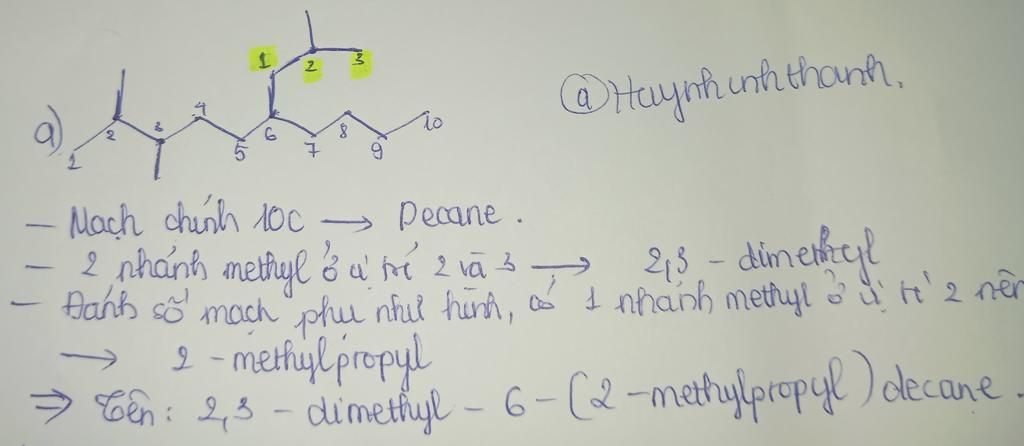 1 2 3
a) 1 2 3 4 5 6 7 8 9 10
@Huynhinhthanh.
– Mạch chính 10C → Decane.
– 2 nhánh methyl ở vị trí 2 và 3 → 2,3 - dimethyl
– Đánh số mạch phụ như hình, có 1 nhánh methyl ở vị trí 2 nên
→ 2 - methylpropyl
⇒ Tên: 2,3 - dimethyl - 6 - (2 - methylpropyl) decane.